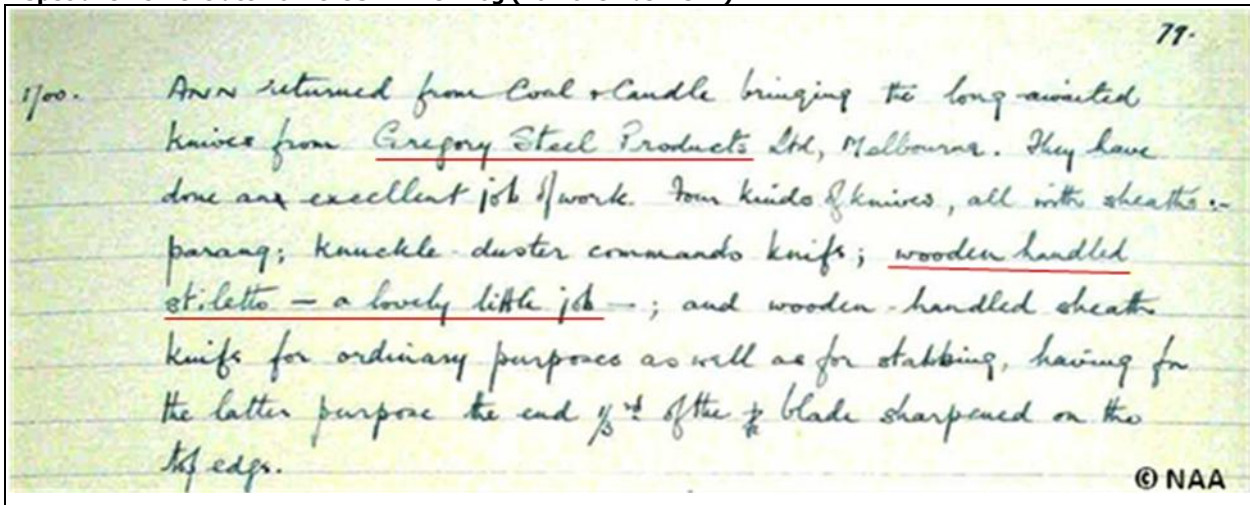 79.
1700. ANN returned from Coal & Candle bringing the long-awaited
knives from Gregory Steel Products Ltd, Melbourne. They have
done an excellent job of work. Four kinds of knives, all with sheaths:-
parang; knuckle-duster commando knife; wooden handled
stiletto — a lovely little job —; and wooden-handled sheath
knife for ordinary purposes as well as for stabbing, having for
the latter purpose the end 1/3rd of the blade sharpened on the
top edge.
© NAA